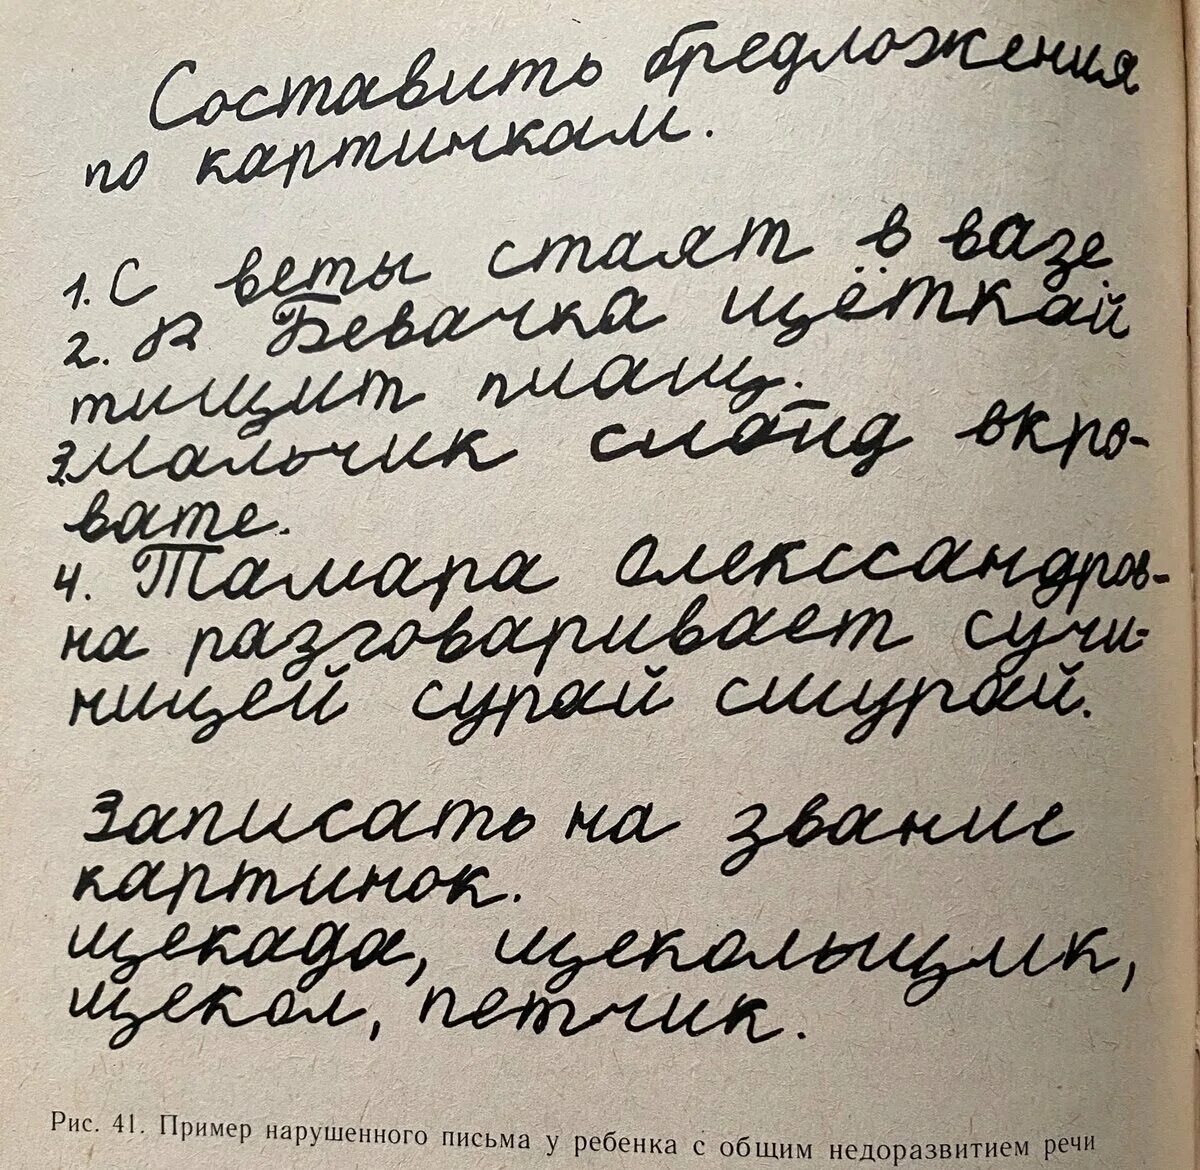 Составить бредложения
по картинкам.
1. С веты стаят в вазе.
2. В Бевачка щёткай
тищит плащ.
3. Мальчик спапид вкро-
вате.
4. Тамара Олекссандров-
на разговаривает сучи-
ницей сурай смурай.
Записать на звание
картинок.
щекада, щекольщик,
щекол, петчик.
Рис. 41. Пример нарушенного письма у ребенка с общим недоразвитием речи